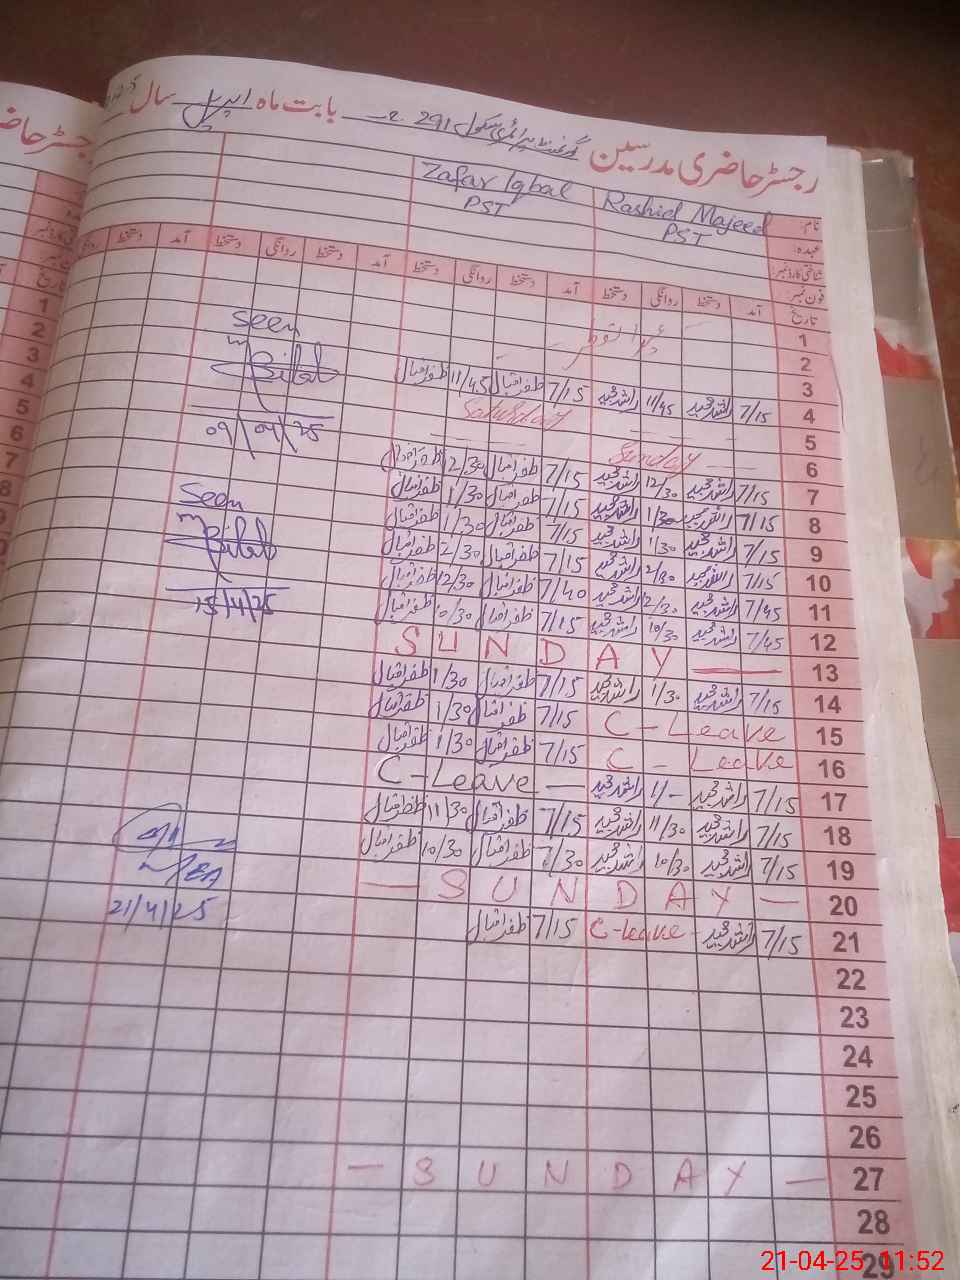 رجسٹر حاضری مدرسین گورنمنٹ پرائمری سکول 291 بابت ماہ اپریل سال
نام: Rashid Majeed Zafar Iqbal
عہدہ: PST PST
شناختی کارڈ نمبر:
فون نمبر:
تاریخ آمد دستخط روانگی دستخط آمد دستخط روانگی دستخط آمد دستخط روانگی دستخط آمد دستخط روانگی
1
2
3
4 7/15 راشد مجید 11/45 راشد مجید 7/15 ظفر اقبال 11/45 ظفر اقبال
5 Saturday
6 Sunday
7 7/15 راشد مجید 12/30 راشد مجید 7/15 ظفر اقبال 12/30 ظفر اقبال
8 7/15 راشد مجید 1/30 راشد مجید 7/15 ظفر اقبال 1/30 ظفر اقبال
9 7/15 راشد مجید 1/30 راشد مجید 7/15 ظفر اقبال 1/30 ظفر اقبال
10 7/15 راشد مجید 2/30 راشد مجید 7/15 ظفر اقبال 2/30 ظفر اقبال
11 7/45 راشد مجید 12/30 راشد مجید 7/40 ظفر اقبال 12/30 ظفر اقبال
12 7/45 راشد مجید 10/30 راشد مجید 7/15 ظفر اقبال 10/30 ظفر اقبال
13 SUNDAY
14 7/15 راشد مجید 1/30 راشد مجید 7/15 ظفر اقبال 1/30 ظفر اقبال
15 C-Leave 7/15 ظفر اقبال 1/30 ظفر اقبال
16 C-Leave 7/15 ظفر اقبال 1/30 ظفر اقبال
17 7/15 راشد مجید 1/- راشد مجید C-Leave —
18 7/15 راشد مجید 11/30 راشد مجید 7/15 ظفر اقبال 11/30 ظفر اقبال
19 7/15 راشد مجید 10/30 راشد مجید 7/30 ظفر اقبال 10/30 ظفر اقبال
20 — SUNDAY —
21 7/15 راشد مجید C-Leave 7/15 ظفر اقبال
22
23
24
25
26
27 — SUNDAY —
28
29
Seen
Bilal
09/04/25
Seen
Bilal
15/4/25
AEA
21/4/25
رجسٹر حاضری
تاریخ
1
2
3
4
5
6
7
8
21-04-25 11:52